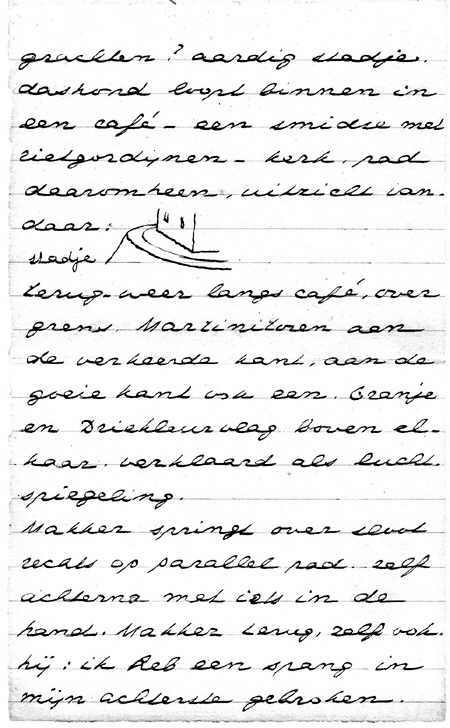 grachten? aardig stadje.
dashond loopt binnen in
een café – een smidse met
rietgordijnen – kerk, pad
daaromheen, uitzicht van-
daar:
stadje
terug-weer langs café, over
grens. Martinitoren aan
de verkeerde kant, aan de
goeie kant ook een. Oranje
en Driekleurvlag boven el-
kaar. verklaard als lucht-
spiegeling.
Makker springt over sloot
rechts op parallel pad. zelf
achterna met iets in de
hand. Makker terug, zelf ook.
hij: ik heb een spang in
mijn achterste gebroken.